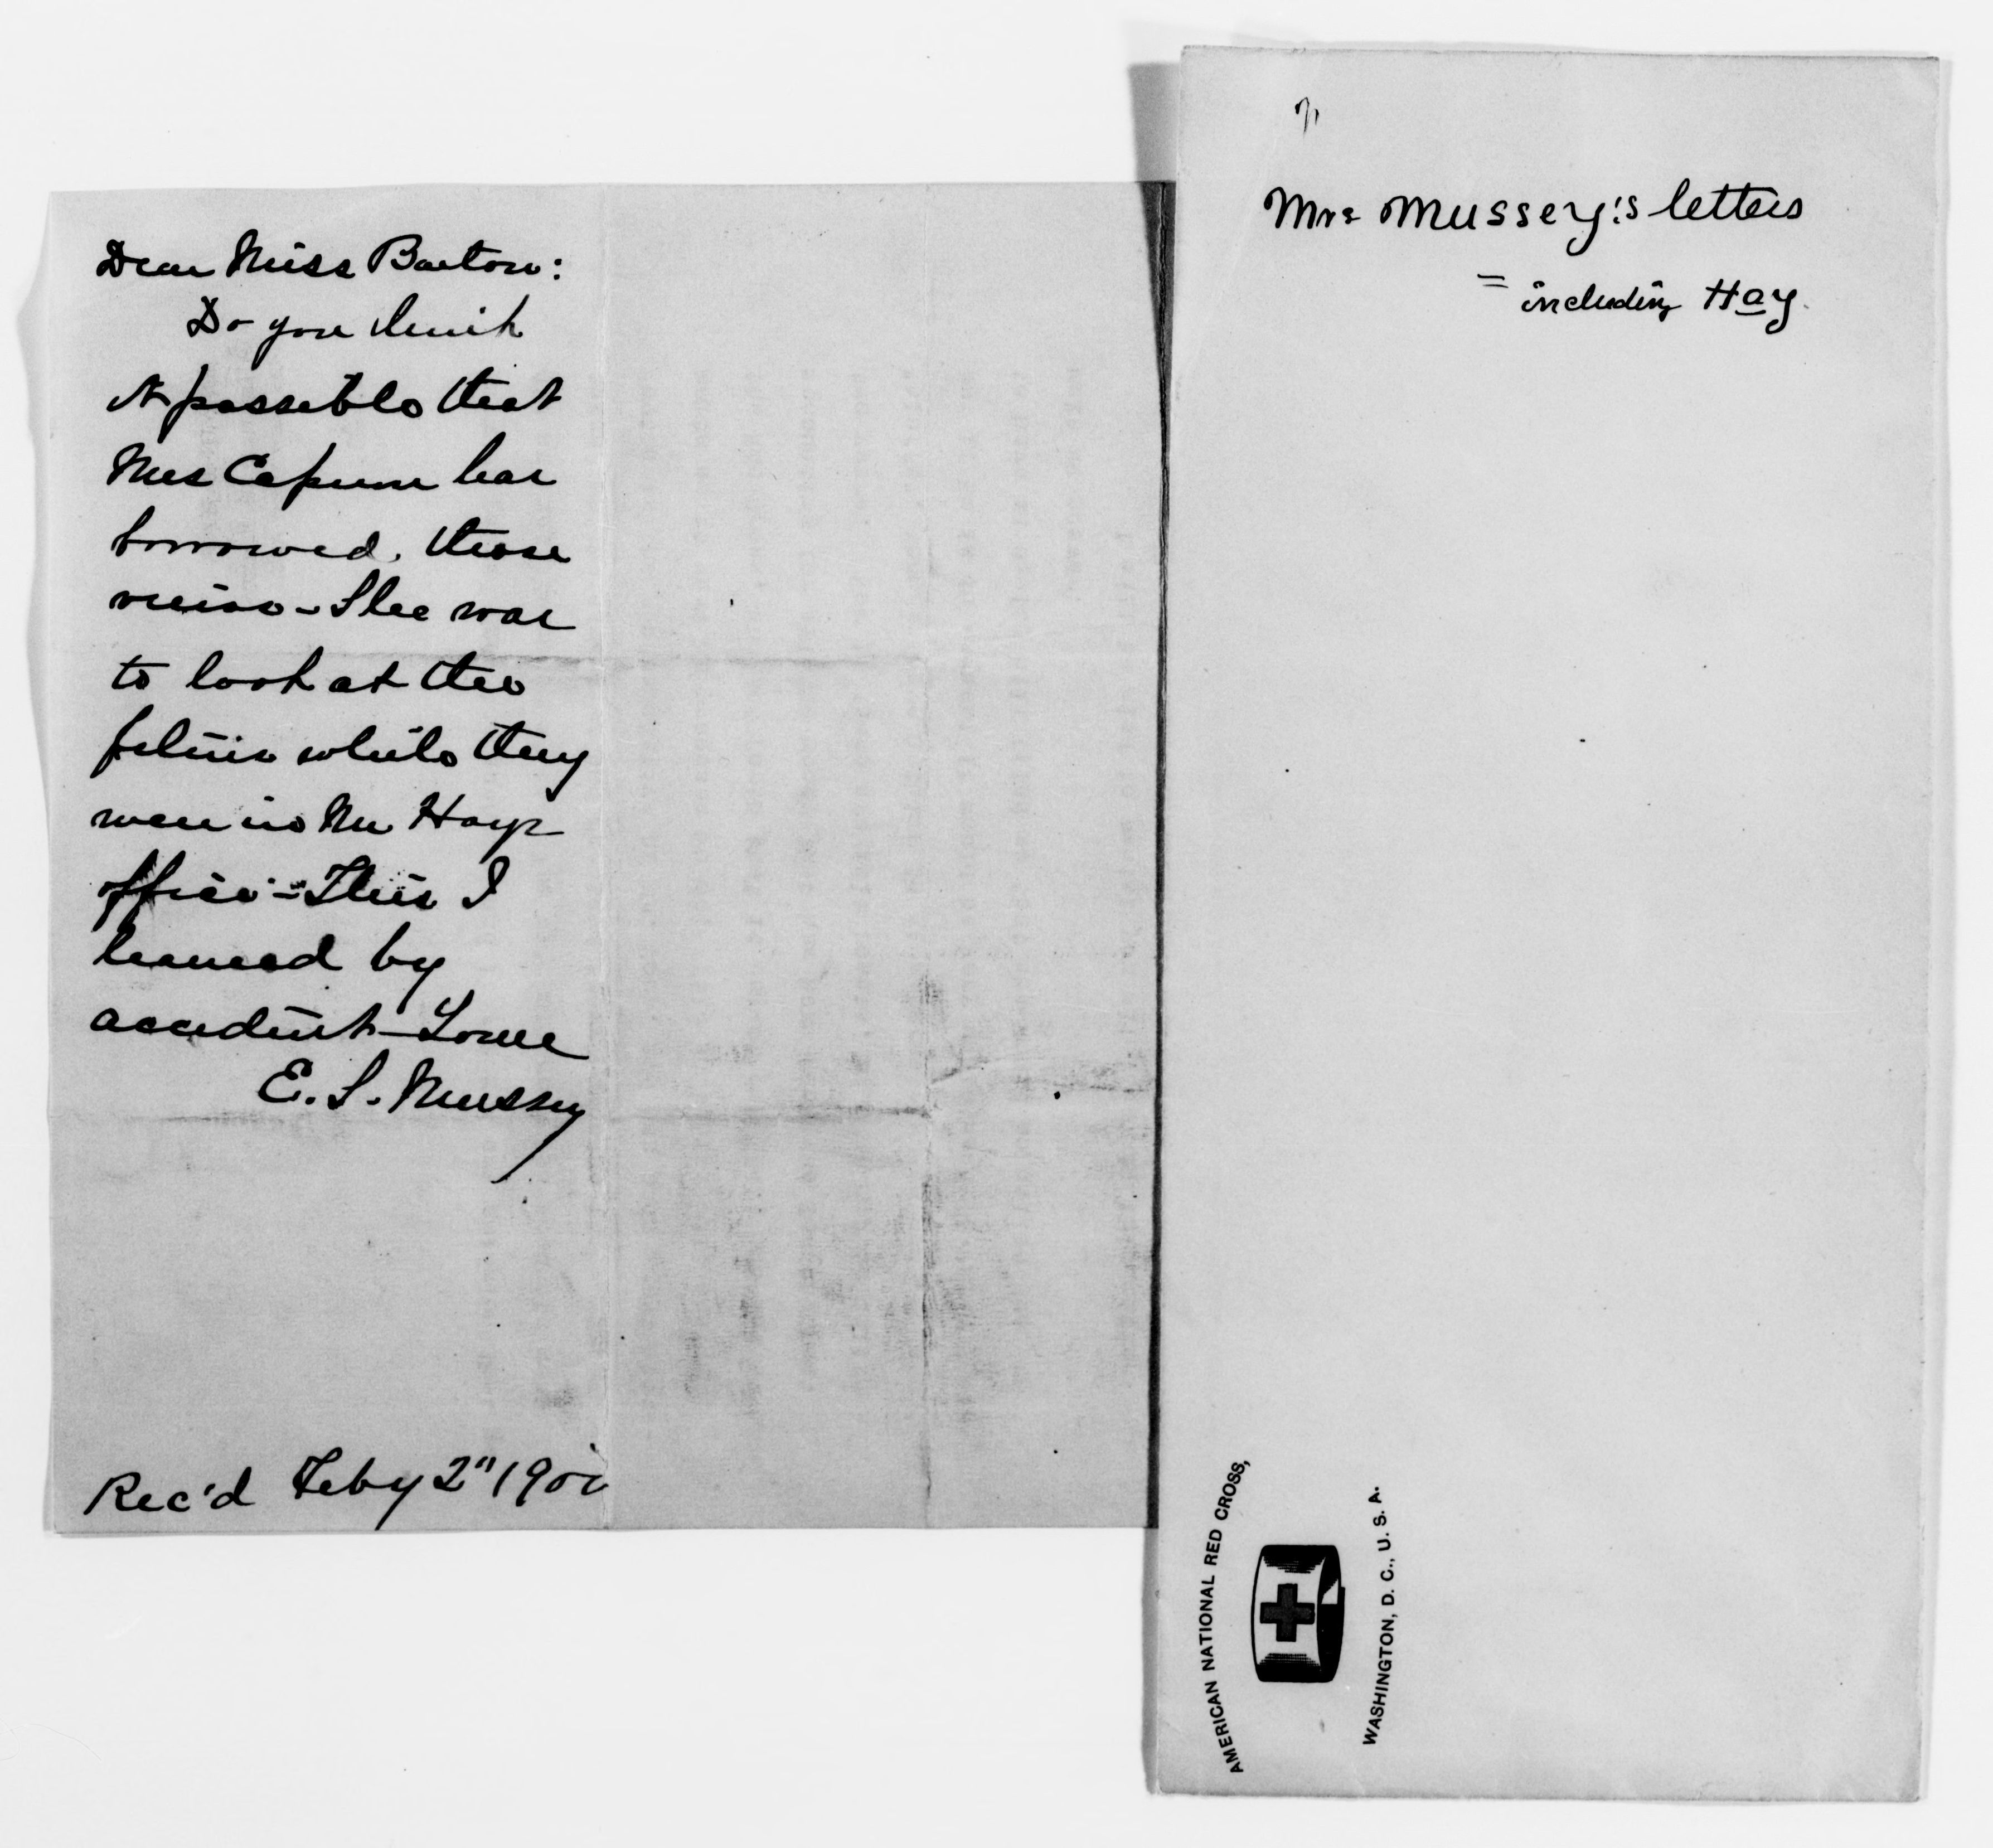 Dear Miss Barton:
Do you think
it possible that
Mrs Capron has
borrowed, those
- She was
to look at the
files while they
were in Mr Hays
office - This I
learned by
accident -
E. S. Mussey
Rec'd Feby 2" 190
Mrs Mussey's letters
= including Hay.
AMERICAN NATIONAL RED CROSS,
WASHINGTON, D. C., U. S. A.